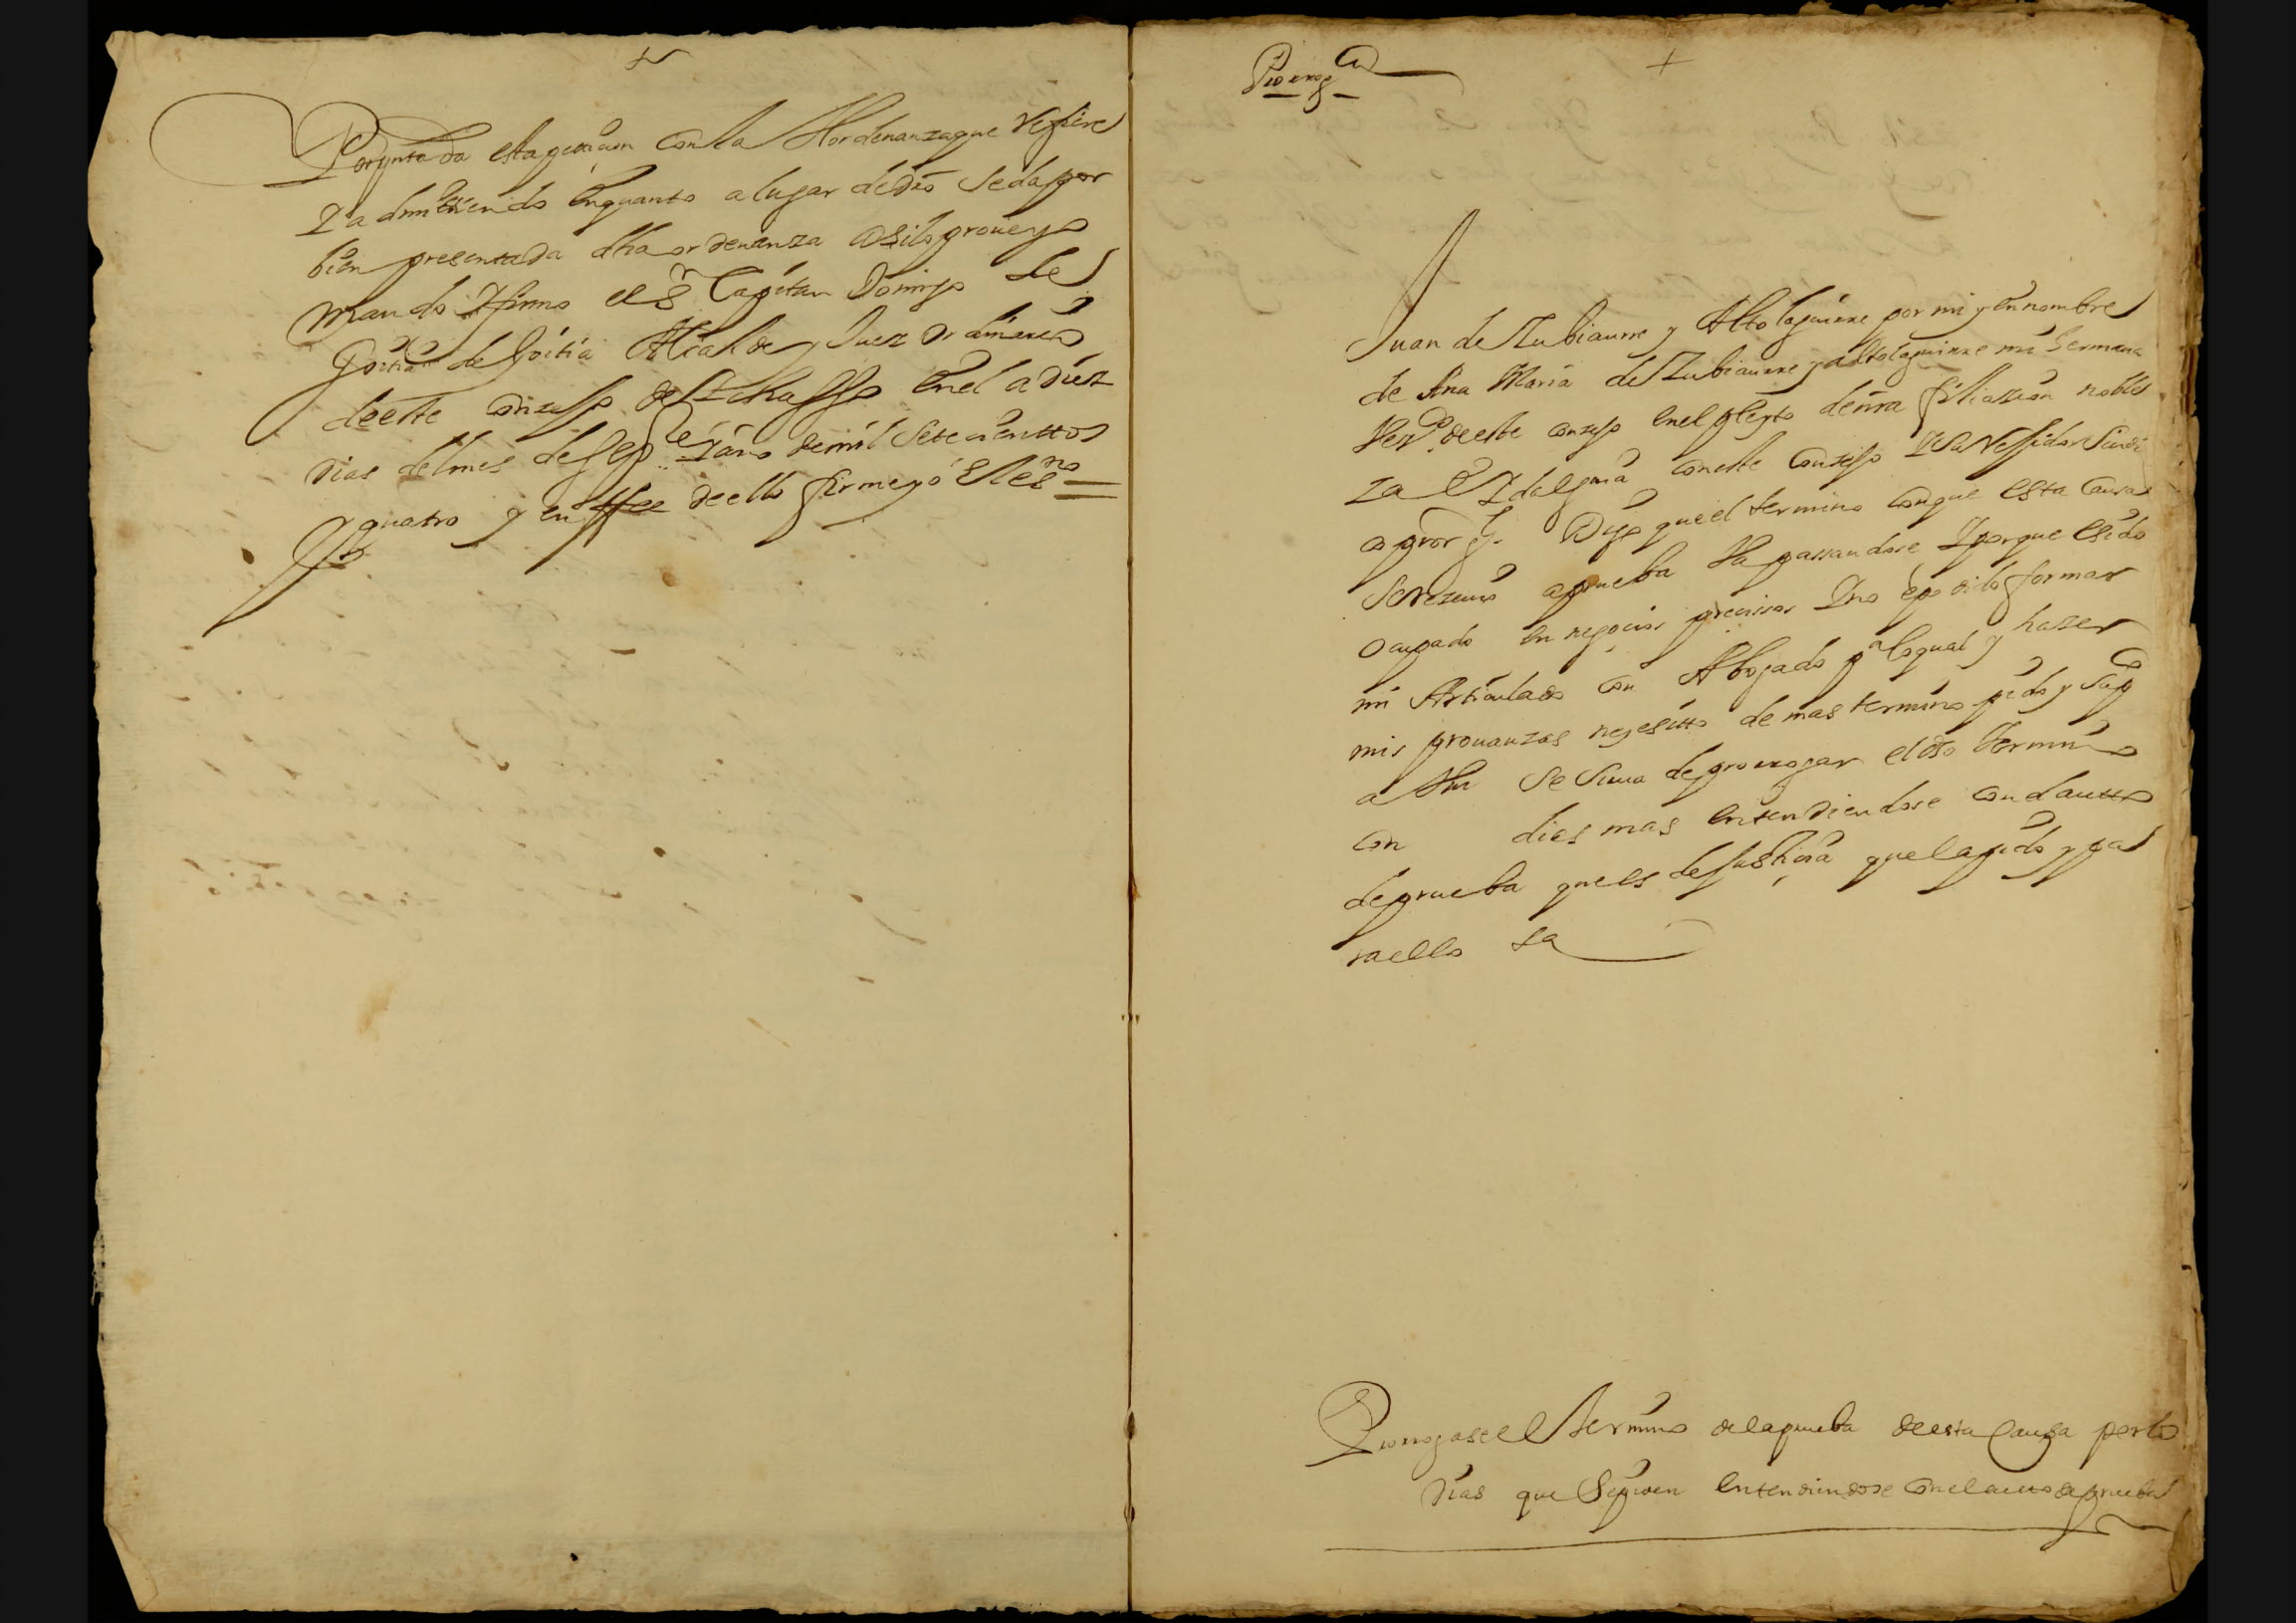 Por junta da esta peticion con la Hordenanza que refiere
I admitiendo enquanto a lugar de dro se da por
bien presentada dha ordenanza asilo proueyo
mando I firmo el Sr Capitan Domingo de
Goitia de Goitia Alcalde y Juez Ordinario
de este conzejo de Ichasso en el a diez
dias del mes de Sepe I año de mil setecienttos
y quatro y en ffee de ello firme yo el esno
Prorrogon
Juan de Zubiaurre y Altolaguirre por mi y en nombre
de Ana Maria de Zubiaurre y altolaguirre mi hermana
Vezos de este conzejo en el pleyto de nra filiazion noble
za e Idalguia con este conzejo I su Rejidor Sindi
co pror Gl Digo que el termino con que esta causa
se rezeuio aprueba ba passandose I porque e sido
ocupado en negocios precissos I no e podido formar
mi Articulado con Abogado pa lo qual y hazer
mis prouanzas nezesitto de mas termino pido y supco
a Vm se sirua de prorrogar el dho termino
con dias mas entendiendose con el autto
de prueba que es de Justizia que la pido y pa
ra ello Ea
Prorrogase el termino de la prueba de esta Causa por los
dias que Siguen entendiendose con el auto de prueba